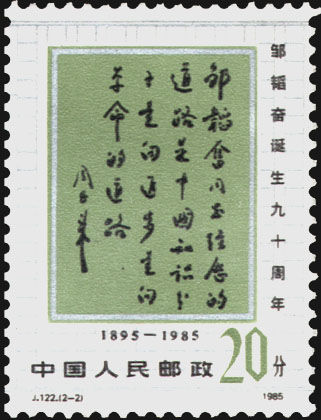 邹韬奋诞生九十周年
邹韬奋同志经历的
道路是中国知识分
子走向进步走向
革命的道路
周恩来
1895—1985
中国人民邮政
20分
J.122.(2-2)
1985